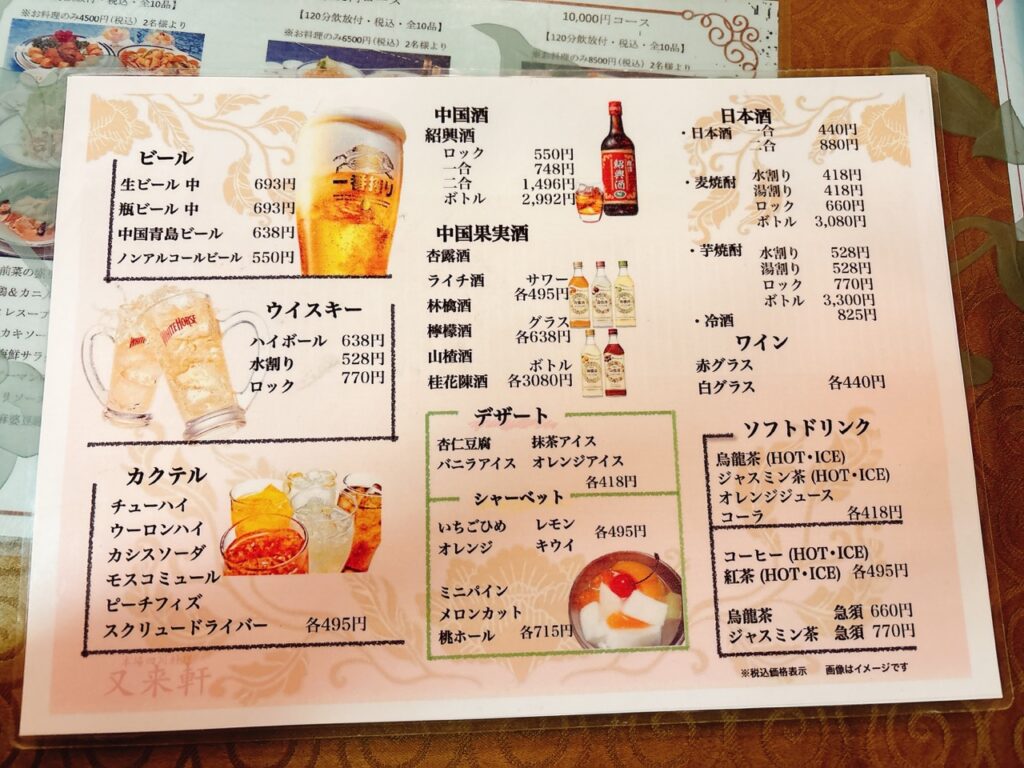 全10品】
※お料理のみ4500円(税込)2名様より
コース
【120分飲放付・税込・全10品】
※お料理のみ6500円(税込)2名様より
10,000円コース
【120分飲放付・税込・全10品】
※お料理のみ8500円(税込)2名様より
ビール
生ビール 中 693円
瓶ビール 中 693円
中国青島ビール 638円
ノンアルコールビール 550円
一番搾り
ウイスキー
ハイボール 638円
水割り 528円
ロック 770円
WHITE HORSE
カクテル
チューハイ
ウーロンハイ
カシスソーダ
モスコミュール
ピーチフィズ
スクリュードライバー 各495円
又来軒
中国酒
紹興酒
ロック 550円
一合 748円
二合 1,496円
ボトル 2,992円
紹興酒
中国果実酒
杏露酒
ライチ酒 サワー
各495円
林檎酒
グラス
檸檬酒 各638円
山楂酒 ボトル
桂花陳酒 各3080円
デザート
杏仁豆腐 抹茶アイス
バニラアイス オレンジアイス
各418円
シャーベット
いちごひめ レモン 各495円
オレンジ キウイ
ミニパイン
メロンカット
桃ホール 各715円
日本酒
・日本酒 一合 440円
二合 880円
・麦焼酎 水割り 418円
湯割り 418円
ロック 660円
ボトル 3,080円
・芋焼酎 水割り 528円
湯割り 528円
ロック 770円
ボトル 3,300円
・冷酒 825円
ワイン
赤グラス
白グラス 各440円
ソフトドリンク
烏龍茶 (HOT・ICE)
ジャスミン茶 (HOT・ICE)
オレンジジュース
コーラ 各418円
コーヒー (HOT・ICE)
紅茶 (HOT・ICE) 各495円
烏龍茶 急須 660円
ジャスミン茶 急須 770円
※税込価格表示 画像はイメージです